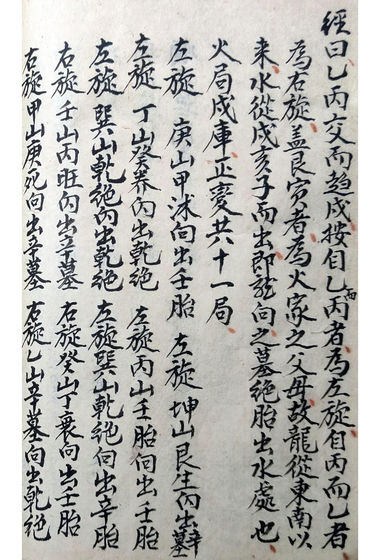 經曰乙丙交而趨戌按自乙而丙者為左旋自丙而乙者
為右旋蓋艮寅者為火家之父母故龍從東南以
來水從戌亥子而出即龍向之墓絕胎出水處也
火局戌庫正變共十一局
左旋 庚山甲沐向出壬胎 左旋 坤山艮生向出辛墓
左旋 丁山癸養向出乾絕 左旋丙山壬胎向出壬胎
左旋 巽山乾絕向出乾絕 左旋巽山乾絕向出辛胎
右旋 壬山丙旺向出辛墓 右旋癸山丁衰向出壬胎
右旋甲山庚死向出辛墓 右旋乙山辛墓向出乾絕